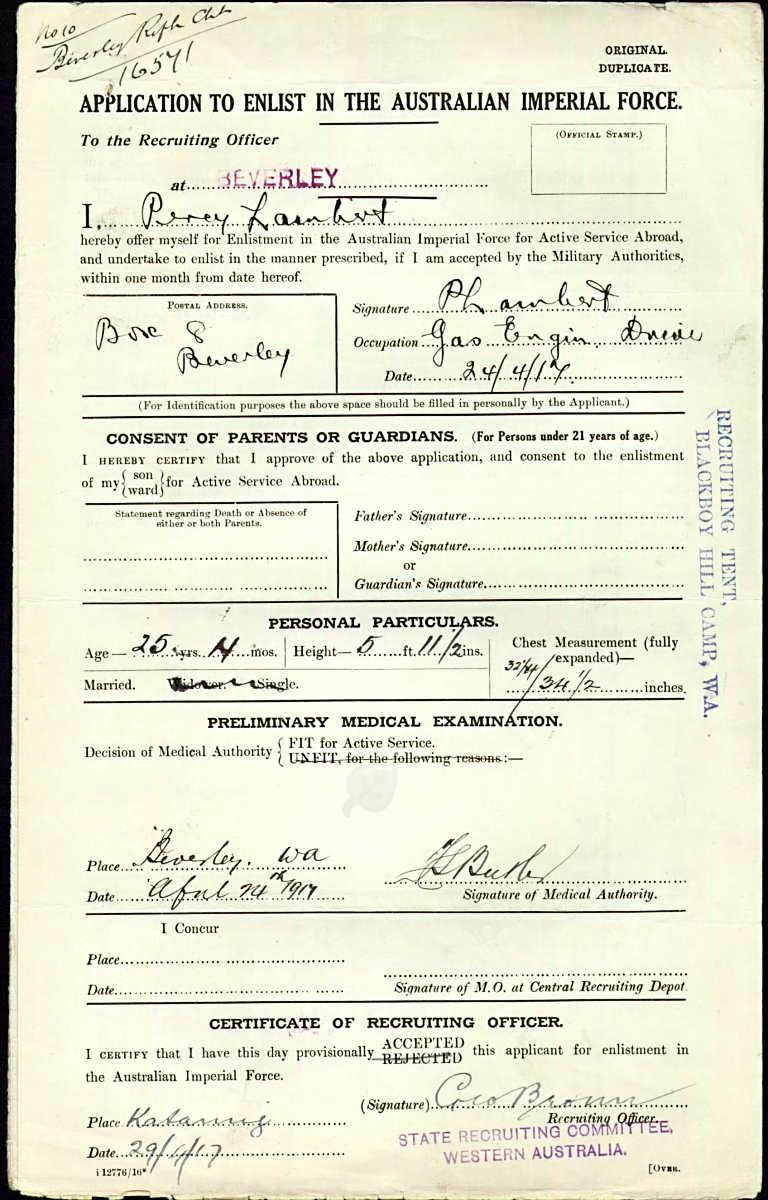 No 10
Beverley Rifle Club
16571
ORIGINAL.
DUPLICATE.
APPLICATION TO ENLIST IN THE AUSTRALIAN IMPERIAL FORCE.
To the Recruiting Officer
(OFFICIAL STAMP.)
at BEVERLEY
I, Percy Lambert
hereby offer myself for Enlistment in the Australian Imperial Force for Active Service Abroad,
and undertake to enlist in the manner prescribed, if I am accepted by the Military Authorities,
within one month from date hereof.
POSTAL ADDRESS.
Box 8
Beverley
Signature PLambert
Occupation Gas Engin
Date 24/4/17
(For Identification purposes the above space should be filled in personally by the Applicant.)
CONSENT OF PARENTS OR GUARDIANS. (For Persons under 21 years of age.)
I HEREBY CERTIFY that I approve of the above application, and consent to the enlistment
of my {son ward} for Active Service Abroad.
Statement regarding Death or Absence of
either or both Parents.
Father's Signature
Mother's Signature
or
Guardian's Signature
RECRUITING TENT,
BLACKBOY HILL CAMP, W.A.
PERSONAL PARTICULARS.
Age— 25 yrs. 4 mos. Height— 5 ft. 11 1/2 ins.
Chest Measurement (fully
expanded)—
34 1/2 inches.
Married. Widower. Single.
PRELIMINARY MEDICAL EXAMINATION.
Decision of Medical Authority { FIT for Active Service.
UNFIT, for the following reasons:—
Place Beverley. WA
Date April 24th 1917
Butler
Signature of Medical Authority.
I Concur
Place
Date
Signature of M.O. at Central Recruiting Depot.
CERTIFICATE OF RECRUITING OFFICER.
I CERTIFY that I have this day provisionally ACCEPTED REJECTED this applicant for enlistment in
the Australian Imperial Force.
(Signature) Brown
Recruiting Officer.
Place Katanning
Date 29/4/17
STATE RECRUITING COMMITTEE,
WESTERN AUSTRALIA.
i 12776/16*
[OVER.